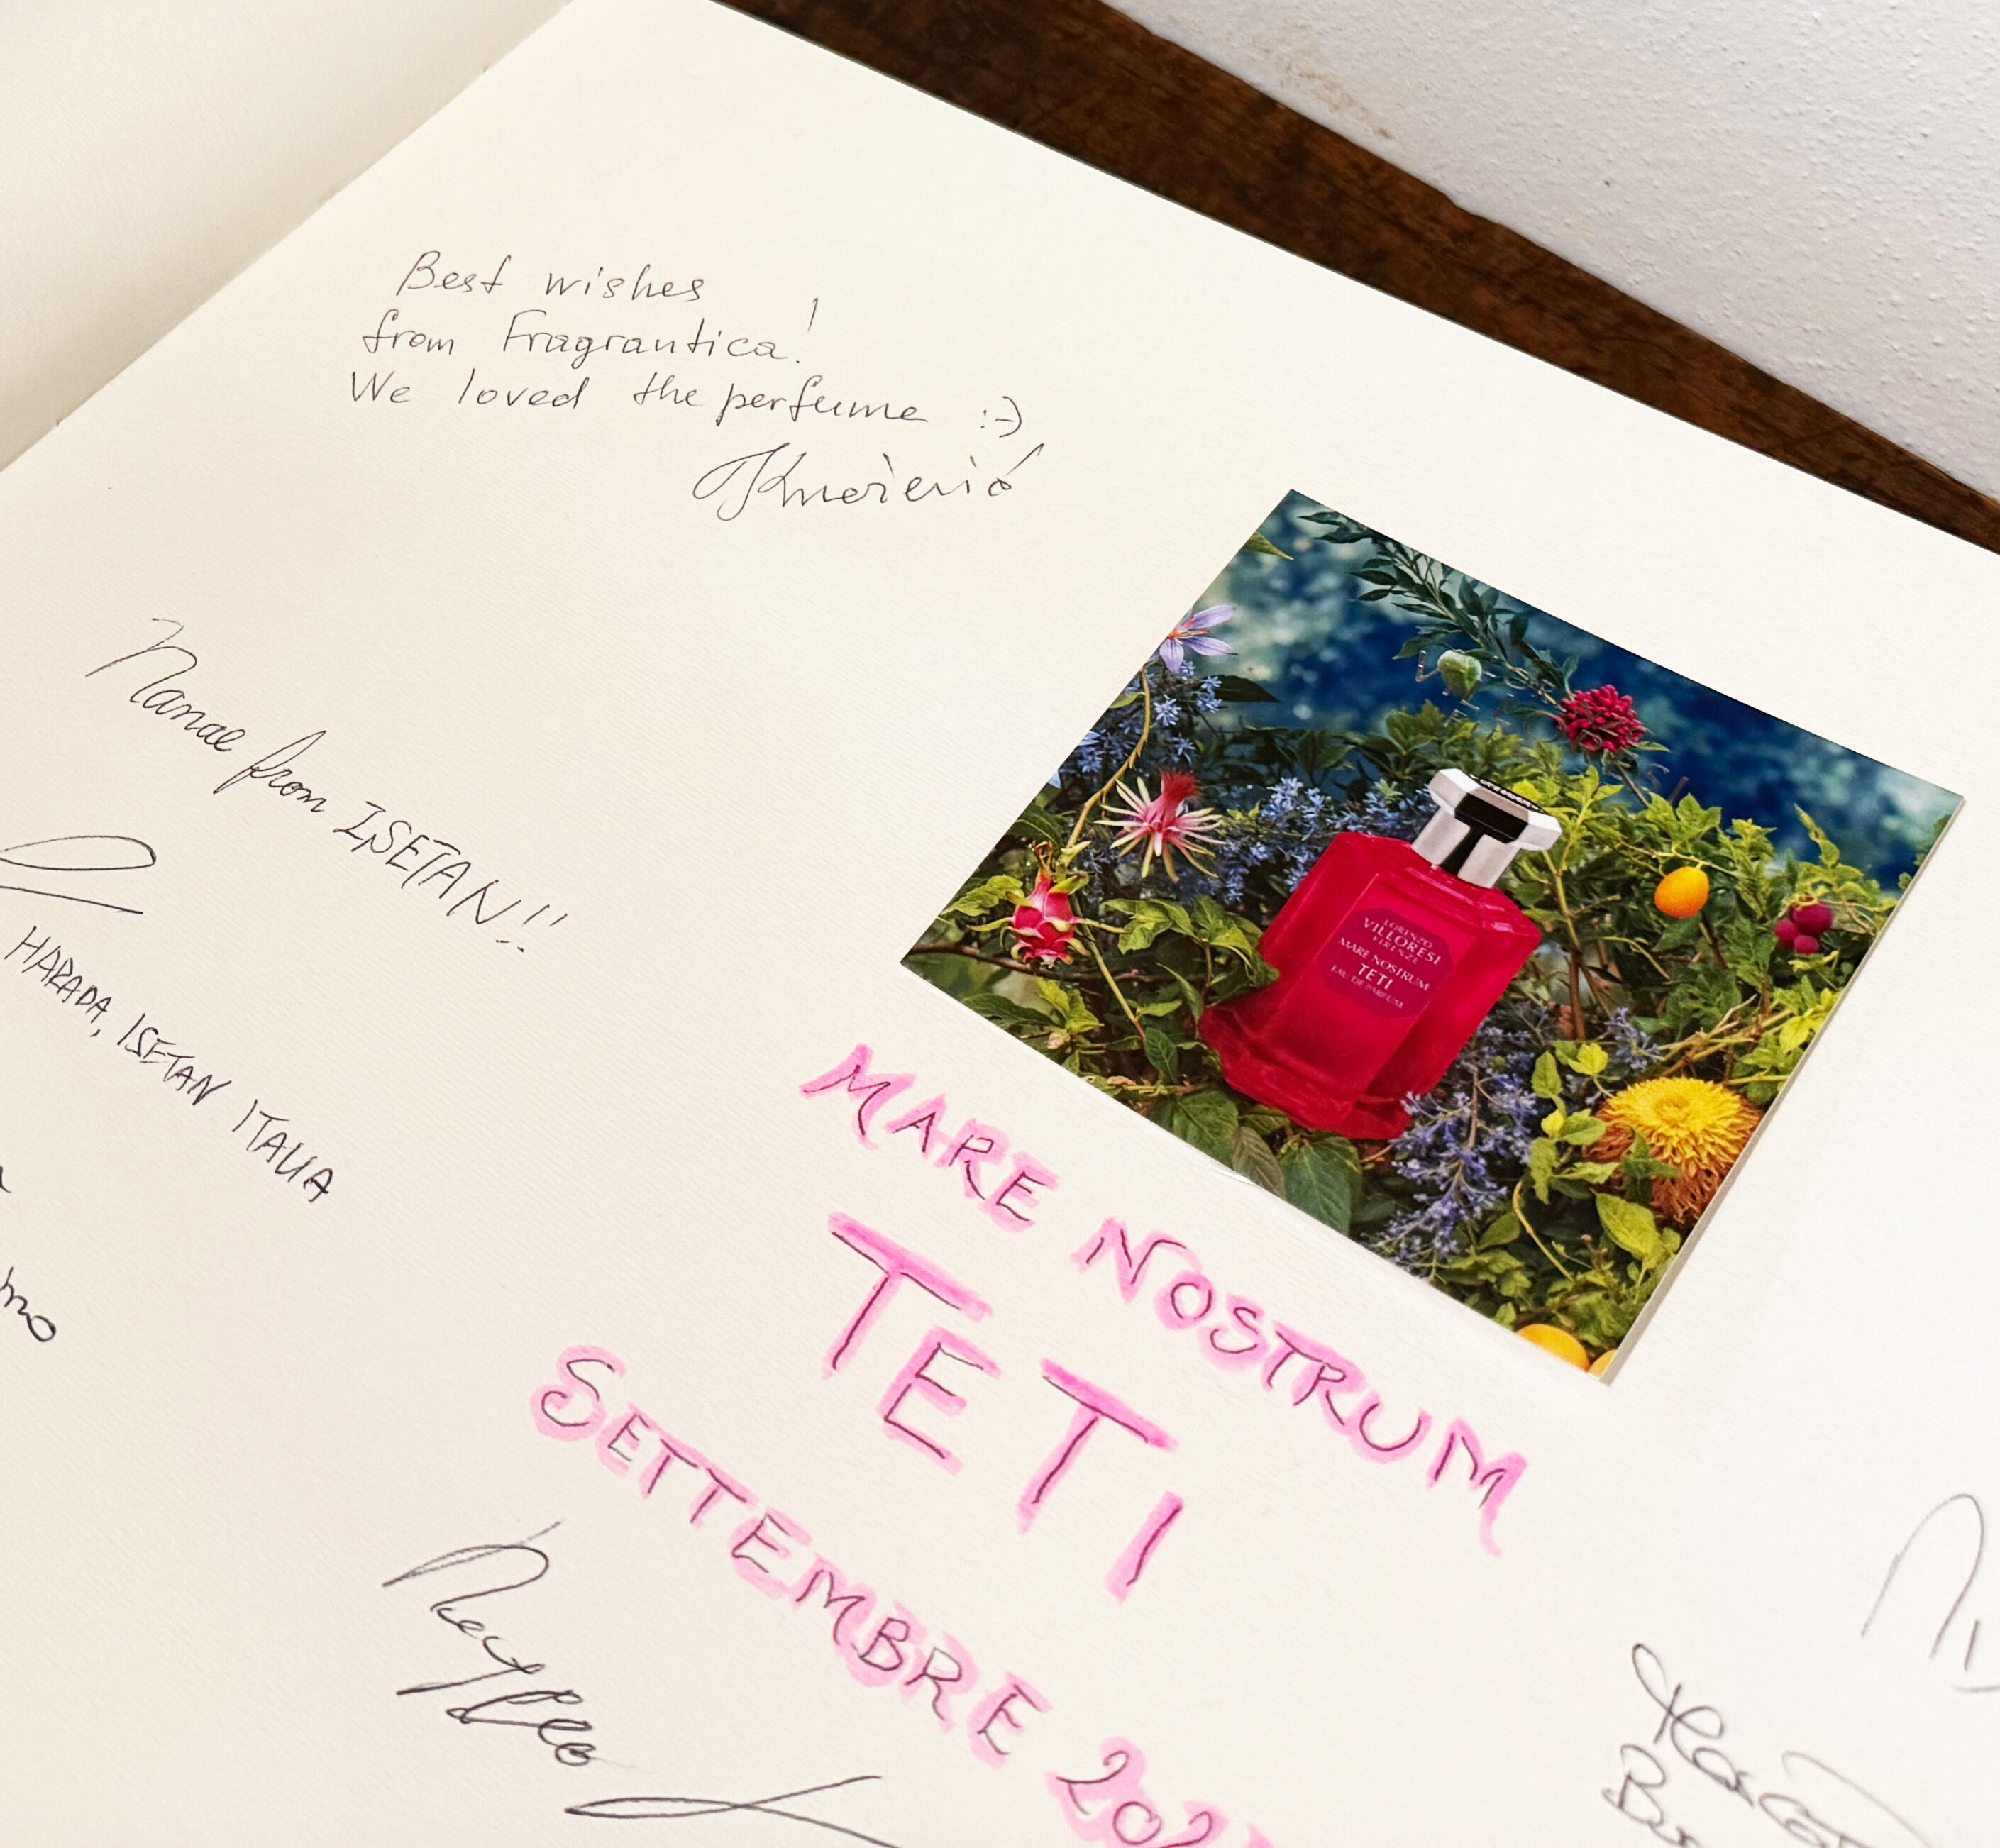 Best wishes
from Fragrantica!
We loved the perfume :-)
Nanae from ISETAN!!
HARADA, ISETAN ITALIA
LORENZO
VILLORESI
FIRENZE
MARE NOSTRUM
TETI
EAU DE PARFUM
MARE NOSTRUM
TETI
SETTEMBRE 202